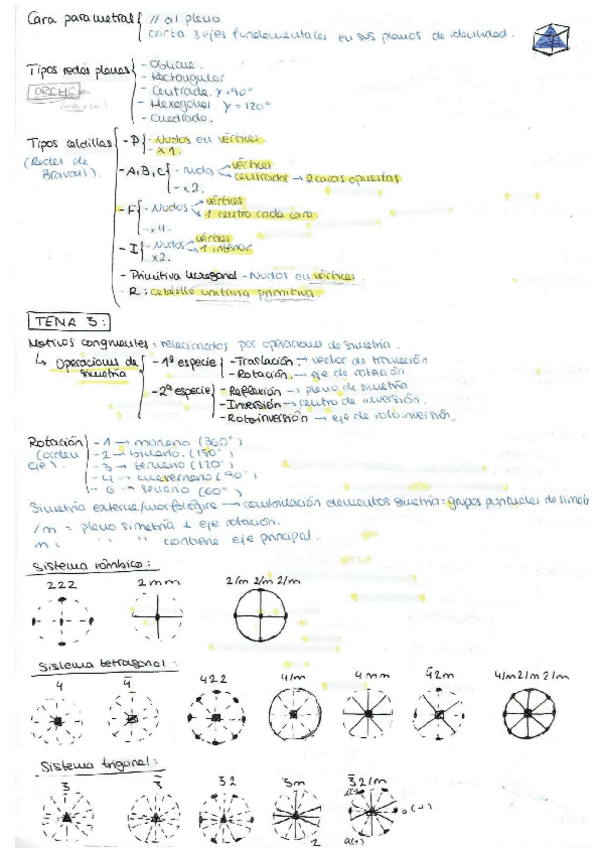 Cara parametral // al plano
corta 3 ejes fundamentales en sus planos de identidad.
Tipos redes planas - Oblicua.
ORCHC - Rectangular
- Centrada. γ=90°
- Hexagonal γ=120°
- Cuadrado.
Tipos celdillas (Redes de Bravais). - P - Nudos en vértices
- x1.
- A,B,C - nudos vértices
centrados → 2 caras opuestas
- x2.
- F - Nudos vértices
1 centro cada cara
- x4.
- I - Nudos vértices
1 interior
x2.
- Primitiva hexagonal - Nudos en vértices.
- R: celdilla unitaria primitiva.
TEMA 3:
Motivos congruentes: relacionados por operaciones de simetría.
↳ Operaciones de simetría - 1ª especie - Traslación: → vector de traslación
- Rotación. → eje de rotación.
- 2ª especie - Reflexión → plano de simetría.
- Inversión → centro de inversión.
- Rotoinversión → eje de rotoinversión.
Rotación (orden eje). - 1 → monario (360°)
- 2 → binario. (180°)
- 3 → ternario (120°)
- 4 → cuaternario (90°)
- 6 → senario (60°)
Simetría externa/morfológica → combinación elementos simetría = grupos puntuales de
/m = plano simetría ⊥ eje rotación.
m = " " contiene eje principal.
Sistema rómbico:
222 2mm 2/m 2/m 2/m
Sistema tetragonal:
4 4̄ 422 4/m 4mm 4̄2m 4/m 2/m 2/m
Sistema trigonal:
3 3̄ 32 3m 3̄2/m